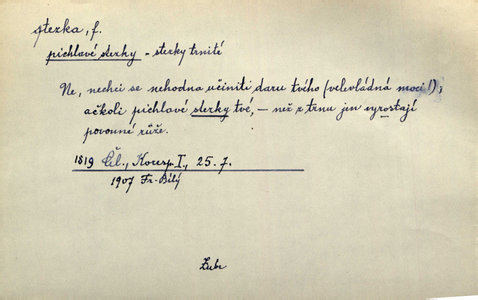 stezka, f.
pichlavé stezky - stezky trnité
Ne, nechci se nehodna učiniti daru tvého (velevládná moci!),
ačkoli pichlavé stezky tvé, - než z trnu jen vyrostají
povonné růže.
1819 Čel., Konsp. I., 25. 7.
1907 Fr. Bílý
Zubr